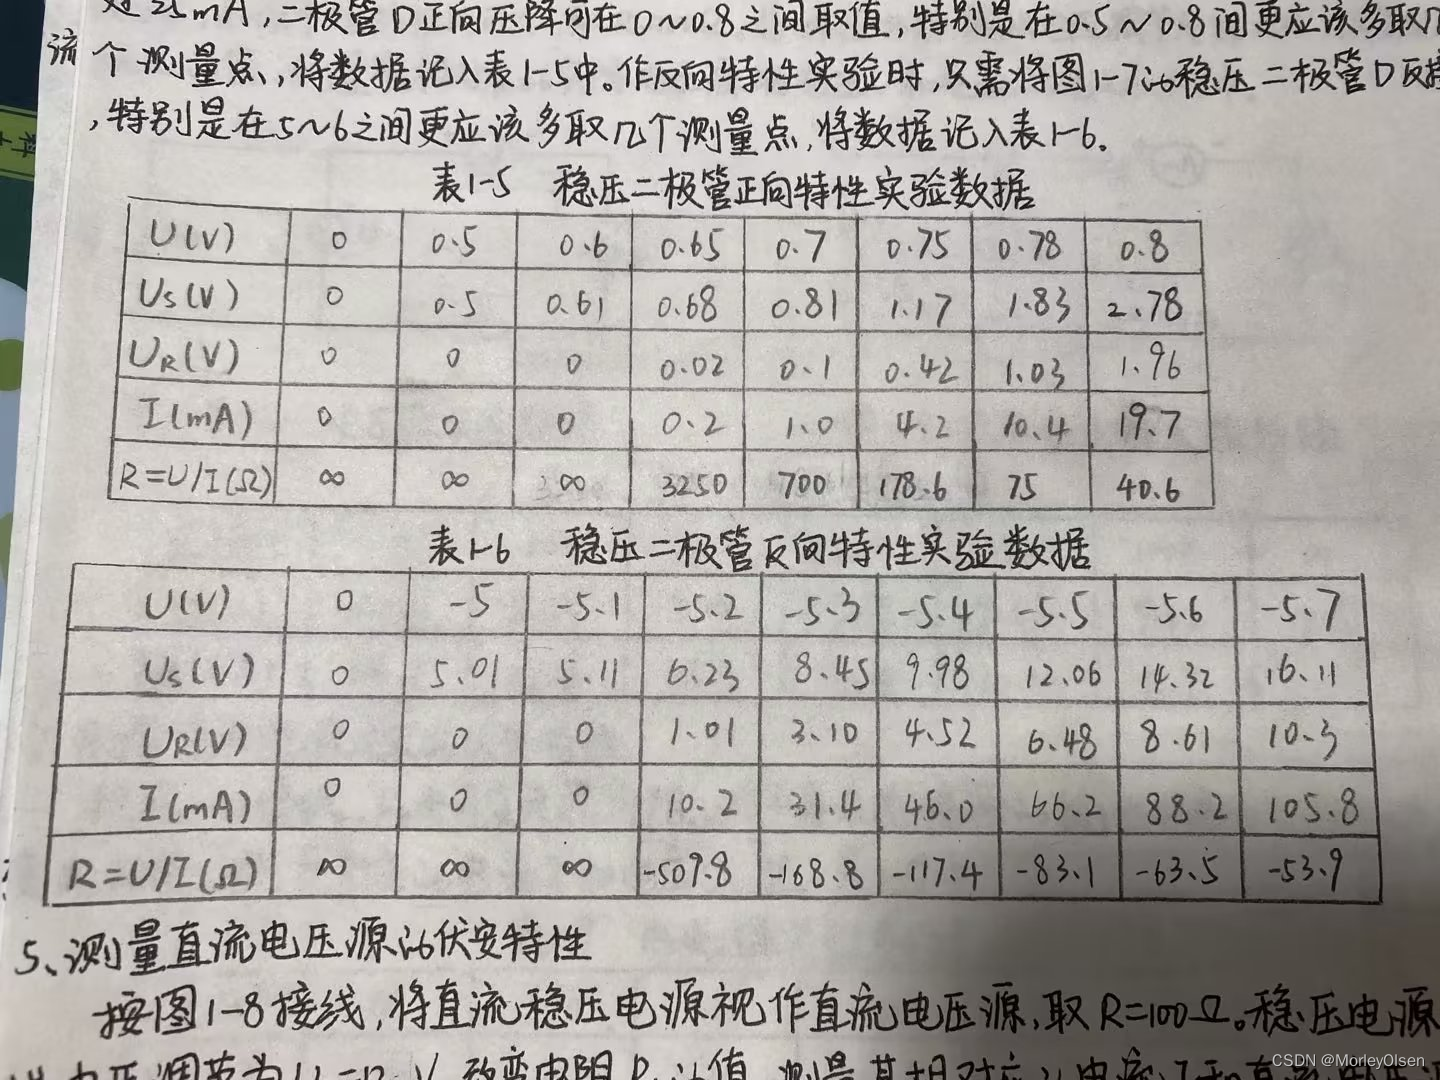 过25mA,二极管D正向压降可在0~0.8之间取值,特别是在0.5~0.8间更应该多取几
流
个测量点,将数据记入表1-5中。作反向特性实验时,只需将图1-7的稳压二极管D反接
,特别是在5~6之间更应该多取几个测量点,将数据记入表1-6。
表1-5 稳压二极管正向特性实验数据
U(V) 0 0.5 0.6 0.65 0.7 0.75 0.78 0.8
Us(V) 0 0.5 0.61 0.68 0.81 1.17 1.83 2.78
UR(V) 0 0 0 0.02 0.1 0.42 1.03 1.96
I(mA) 0 0 0 0.2 1.0 4.2 10.4 19.7
R=U/I(Ω) ∞ ∞ ∞ 3250 700 178.6 75 40.6
表1-6 稳压二极管反向特性实验数据
U(V) 0 -5 -5.1 -5.2 -5.3 -5.4 -5.5 -5.6 -5.7
Us(V) 0 5.01 5.11 6.23 8.45 9.98 12.06 14.32 16.11
UR(V) 0 0 0 1.01 3.10 4.52 6.48 8.61 10.3
I(mA) 0 0 0 10.2 31.4 46.0 66.2 88.2 105.8
R=U/I(Ω) ∞ ∞ ∞ -509.8 -168.8 -117.4 -83.1 -63.5 -53.9
5、测量直流电压源的伏安特性
按图1-8接线,将直流稳压电源视作直流电压源,取R=100Ω。稳压电源
电压调节为 改变电阻 的值,测量其相对应的电流I和直流电压
CSDN @MorleyOlsen